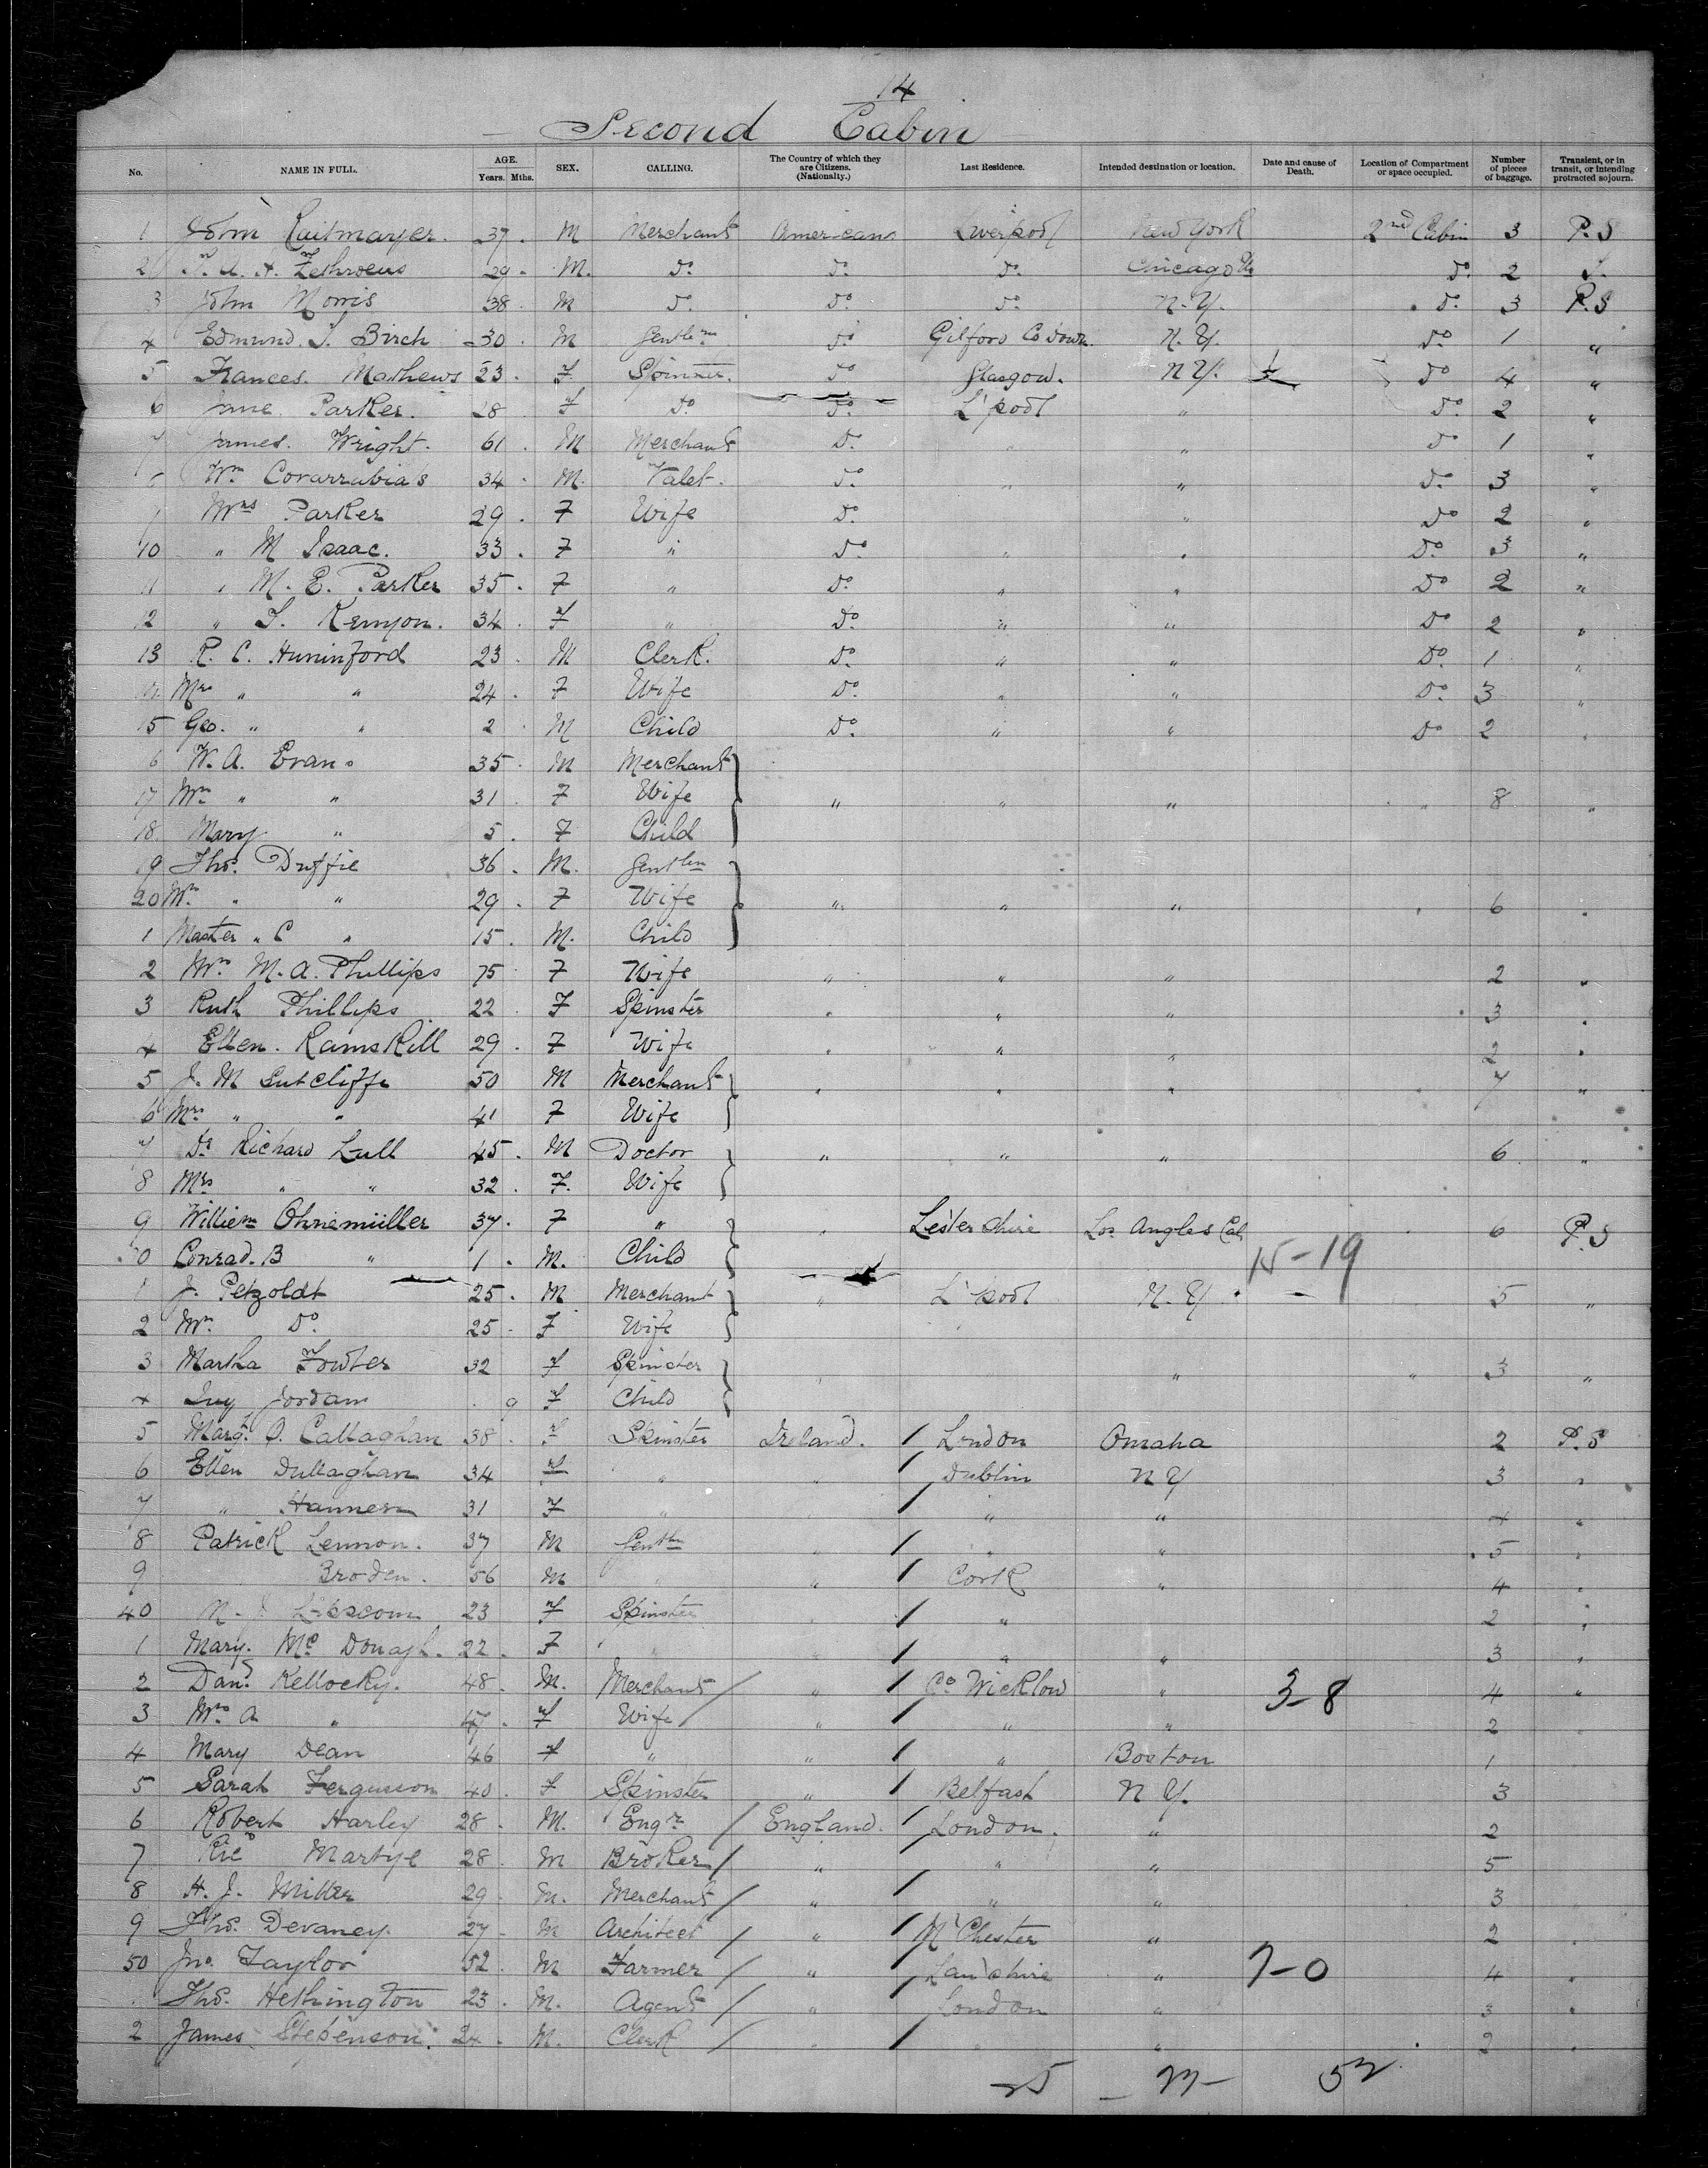 14
Second Cabin
No. NAME IN FULL. AGE. Years. Mths. SEX. CALLING. The Country of which they are Citizens. (Nationalty.) Last Residence. Intended destination or location. Date and cause of Death. Location of Compartment or space occupied. Number of pieces of baggage. Transient, or in transit, or intending protracted sojourn.
1 John Raitmayer. 37 M Merchant American Liverpool New York 2nd Cabin 3 P.S
2 29 M. Do. Do. Do. Chicago Do. 2
3 John Morris 38 M Do. Do. Do. N.Y. Do. 3 P.S
4 Edmund. Birch 30 M Gentlm Do Gilford Co Down. N.Y. Do 1 "
5 Frances. Mathews 23 F Spinster. Do Glasgow. N.Y. Do 4 "
6 Jane Parker. 28 F Do. Do. L'pool " Do. 2 "
7 James. Wright. 61 M Merchant Do. " " Do 1 "
Wm Covarrubias 34 M. Valet. Do. " " Do. 3 "
Mrs Parker 29 F Wife Do. " Do 2 "
10 " M Isaac. 33 F " Do. " " Do. 3 "
11 " M. E. Parker 35 F " Do. " " Do 2 "
12 " Kenyon. 34 F " Do. " " Do 2 "
13 R. C. Huninford 23 M Clerk. Do. " " Do. 1 "
Mrs " " 24 F Wife Do. " " Do. 3 "
15 Geo. " " 2 M Child Do. " " Do 2 "
6 W. A. Evans 35 M Merchant
17 Mrs " " 31 F Wife " " " " 8 "
18. Mary " 5 F Child
19 Thos. Duffie 36 M. Gentlm
20 Mrs. " " 29 F Wife " " " 6 "
1 Master " C " 15 M. Child
2 Mrs M. A. Phillips 75 F Wife " " " 2 "
3 Ruth Phillips 22 F Spinster " " " 3 "
4 Ellen. Ramskill 29 F Wife " " " 2 "
5 J. M Sutcliffe 50 M Merchant " " " 7 "
6 Mrs " " 41 F Wife
7 Dr Richard Lull 45 M Doctor " " " 6 "
8 Mrs " " 32 F. Wife
9 Ohnemüller 37 F " Lester shire Los Angles Cal 6 P.S
0 Conrad. B " 1 M. Child 15-19
1 J. Petzoldt 25 M Merchant " L'pool N.Y. 5 "
2 Mrs Do. 25 F Wife
3 Martha Fowler 32 F Spinster " " " 3 "
4 Jordan 9 F Child
5 Margt. O. Callaghan 38 F Spinster Ireland. / London Omaha 2 P.S
6 Ellen Dullaghan 34 F " " / Dublin N Y 3 "
7 " 31 F " / " " 4 "
8 Patrick Lennon. 37 M Gentm " / " " 5 "
9 Broden. 56 M " " / Cork " 4 "
40 23 F Spinster " / " " 2 "
1 Mary. Mc Donagh. 22 F " " / " " 3 "
2 Danl Kellocky. 48 M. Merchant / " / Co Wicklow " 3-8 4 "
3 Mrs A " 47 F Wife / " / " " 2
4 Mary Dean 46 F " " / " Boston 1
5 Sarah Fergusson 40 F Spinster " / Belfast N Y. 3
6 Robert Harley 28 M. Engr / England. / London. " 2
7 Ricd Martyl 28 M Broker / " / " " 5
8 H. J. Miller 29 M. Merchant / " / " " 3
9 Thos. Devaney. 27 M Architect / " / M'Chester " 2
50 Jno. Taylor 52 M Farmer / " / Lan'shire " 7-0 4 "
Thos. Hethington 23 M. Agent / " / London " 3 "
2 James Stepenson. 24 M. Clerk / " / " " 2 "